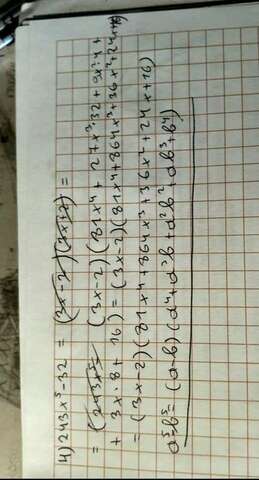 4) 243x⁵-32 = (3x-2)(3x32) =
= (243x⁵ (3x-2)(81x⁴ + 27x³·32 + 9x²·4 +
+ 3x·8 + 16) = (3x-2)(81x⁴+864x³+36x²+24x+16)
= (3x-2)(81x⁴+864x³+36x²+24x+16)
a⁵-b⁵ = (a-b)(a⁴+a³b+a²b²+ab³+b⁴)